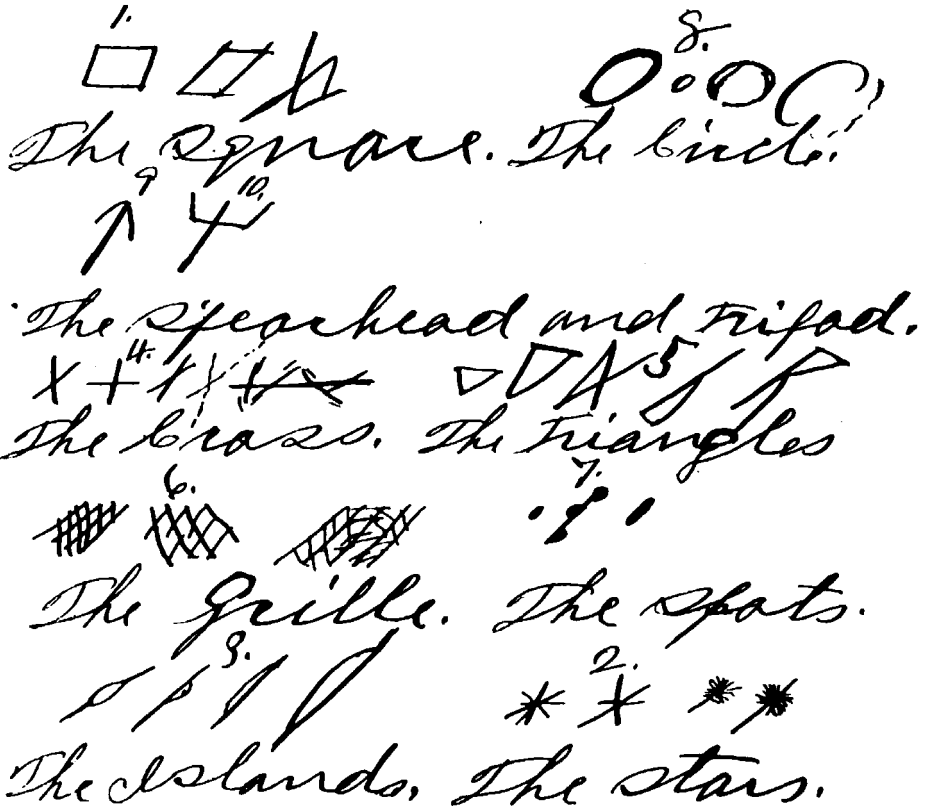 1. 8.
The Square. The Circle.
9 10.
The Spearhead and Tripod.
4. 5
The Cross. The Triangles
6. 7.
The Grille. The Spots.
3. 2.
The Islands. The Stars.